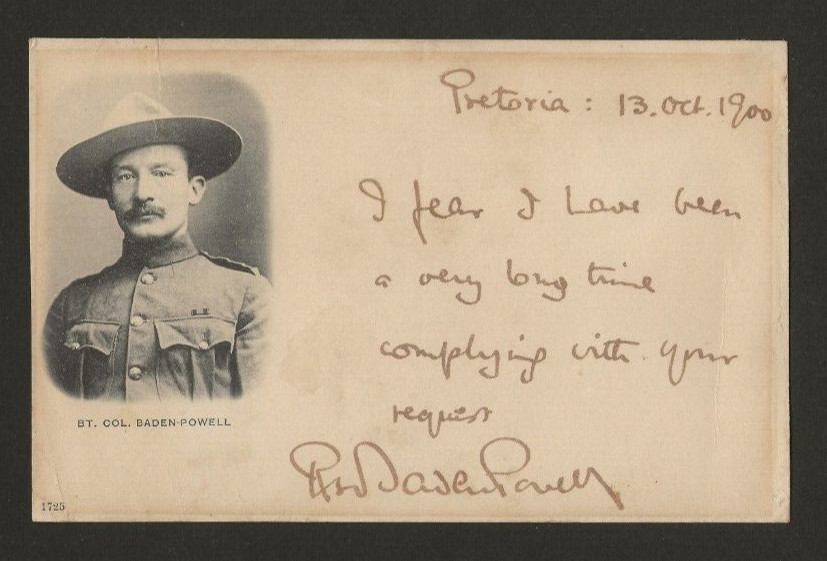 Pretoria: 13. Oct. 1900
I fear I have been
a very long time
complying with your
request
RSS Baden Powell
BT. COL. BADEN-POWELL
1725